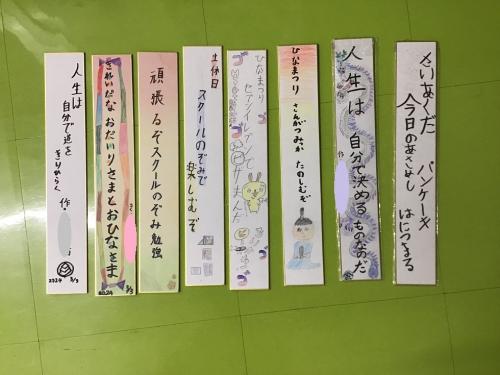 さいあくだ
パンケーキ
今日のあさよし
はにつまる
人生は
自分で決める
ものなのだ
作
ひなまつり
さんがつみっか
たのしむぞ
ひなまつり
土休日
スクールのぞみで
楽しむぞ
頑張るぞスクールのぞみ勉強
きれいだな
おだいりさまとおひなさま
さく
2024 3/3
人生は
自分で道を
きりひらく
作
2024 3/3